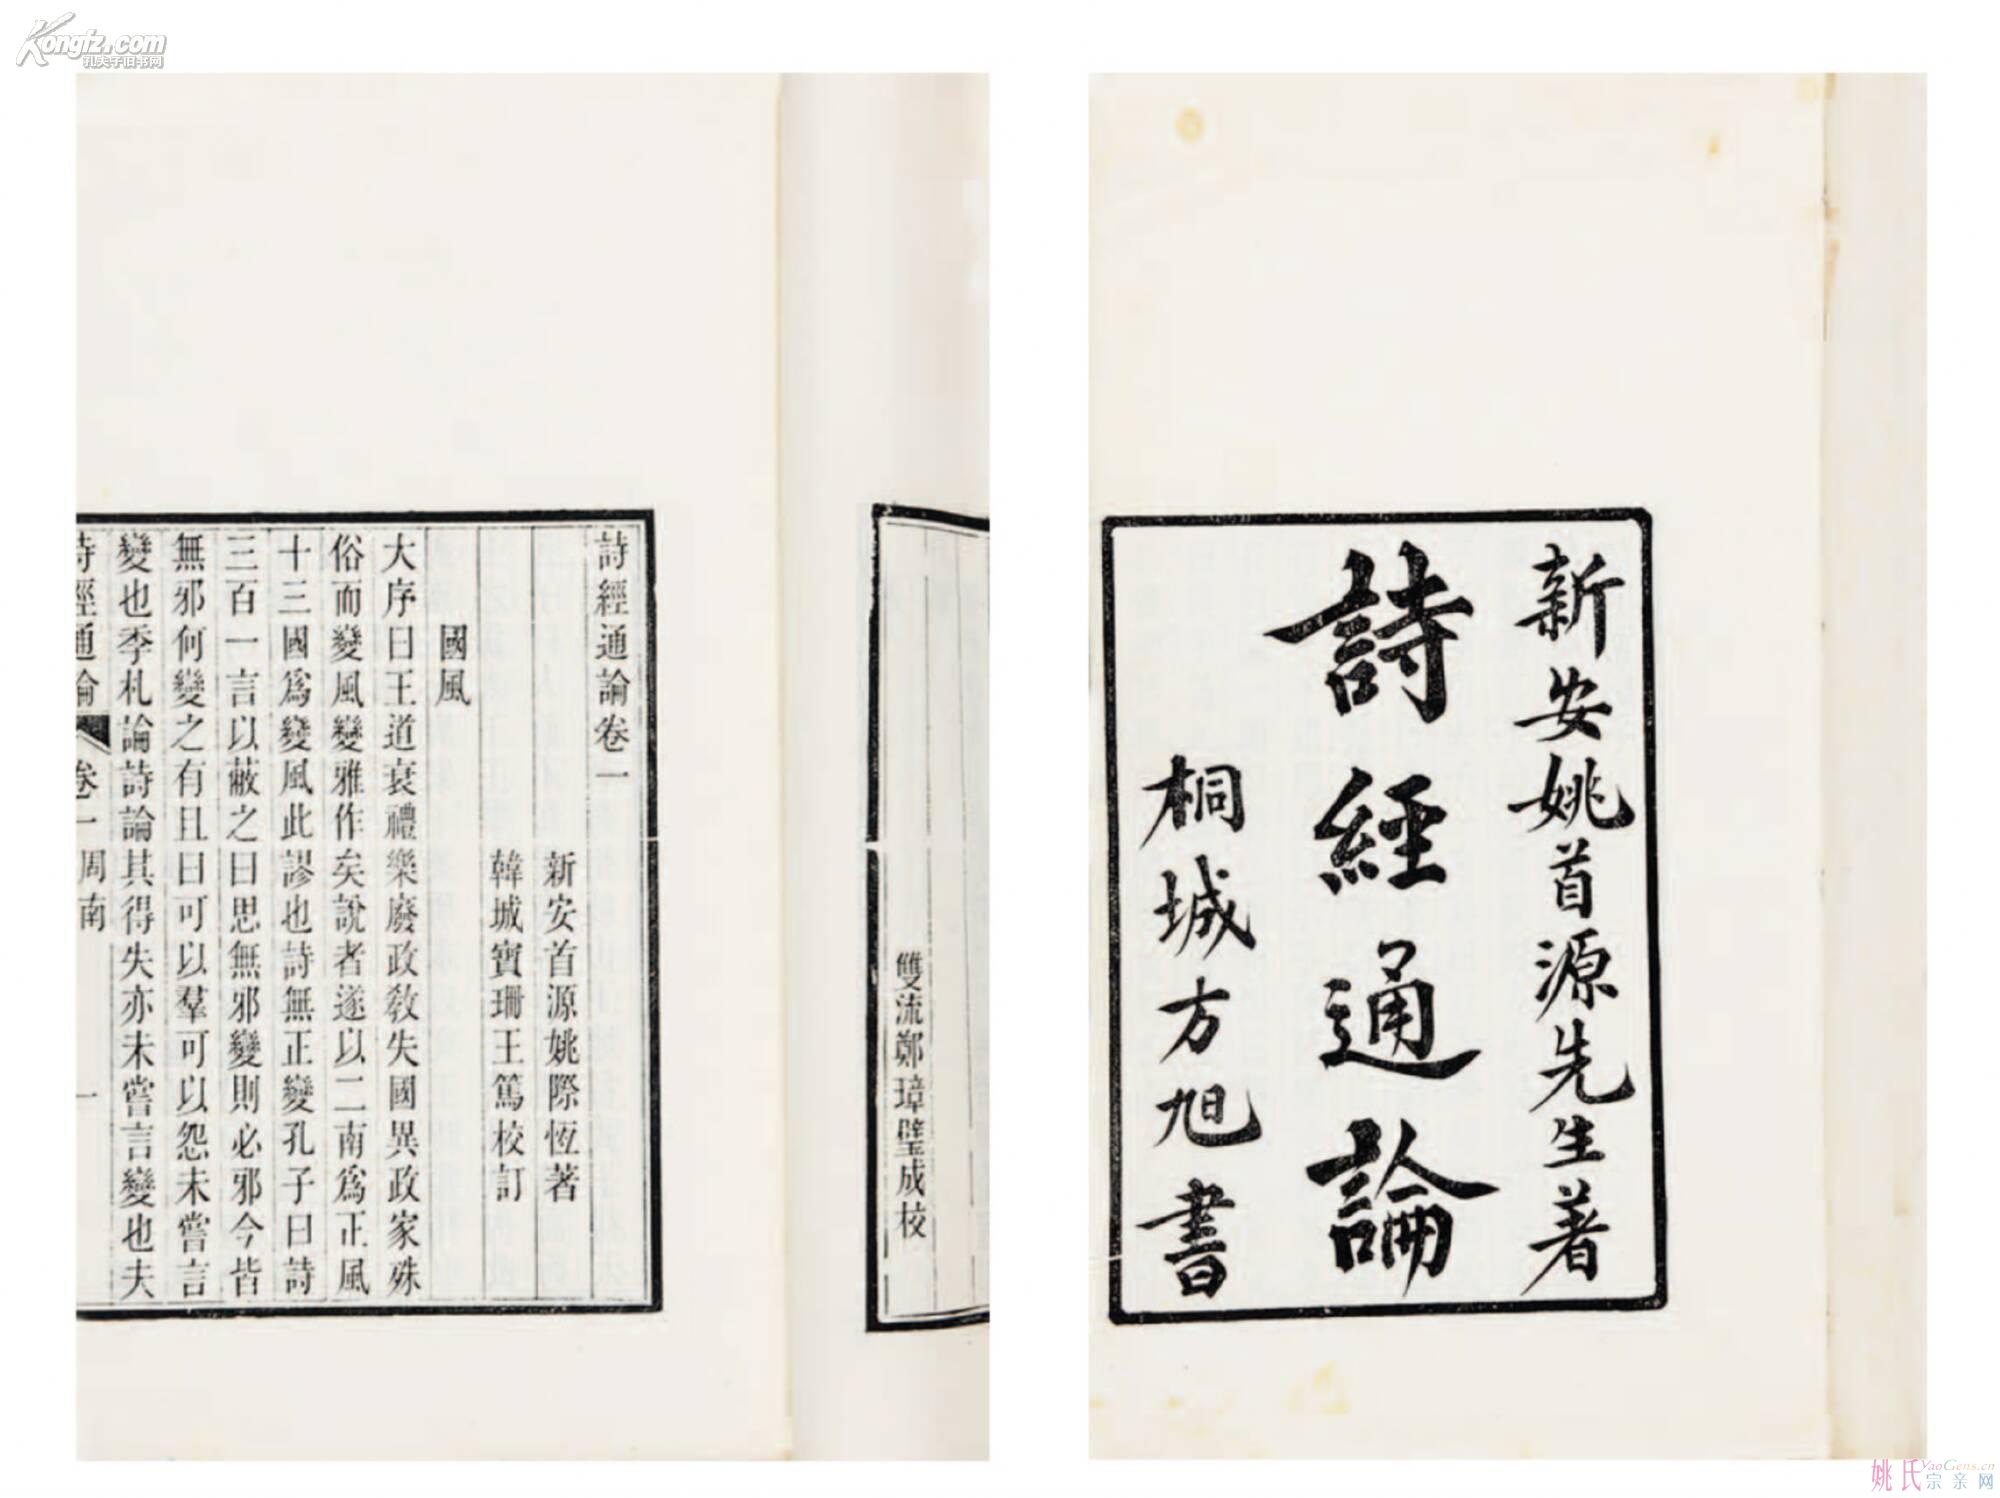 Kongfz.com
孔夫子旧书网
新安姚首源先生著
詩經通論
桐城方旭書
雙流鄭璋璧成校
詩經通論卷一
新安首源姚際恆著
韓城寶珊王篤校訂
國風
大序曰王道衰禮樂廢政敎失國異政家殊
俗而變風變雅作矣說者遂以二南爲正風
十三國爲變風此謬也詩無正變孔子曰詩
三百一言以蔽之曰思無邪變則必邪今皆
無邪何變之有且曰可以羣可以怨未嘗言
變也季札論詩論其得失亦未嘗言變也夫
詩經通論 卷一 周南 一
姚氏宗亲网
YaoGens.cn